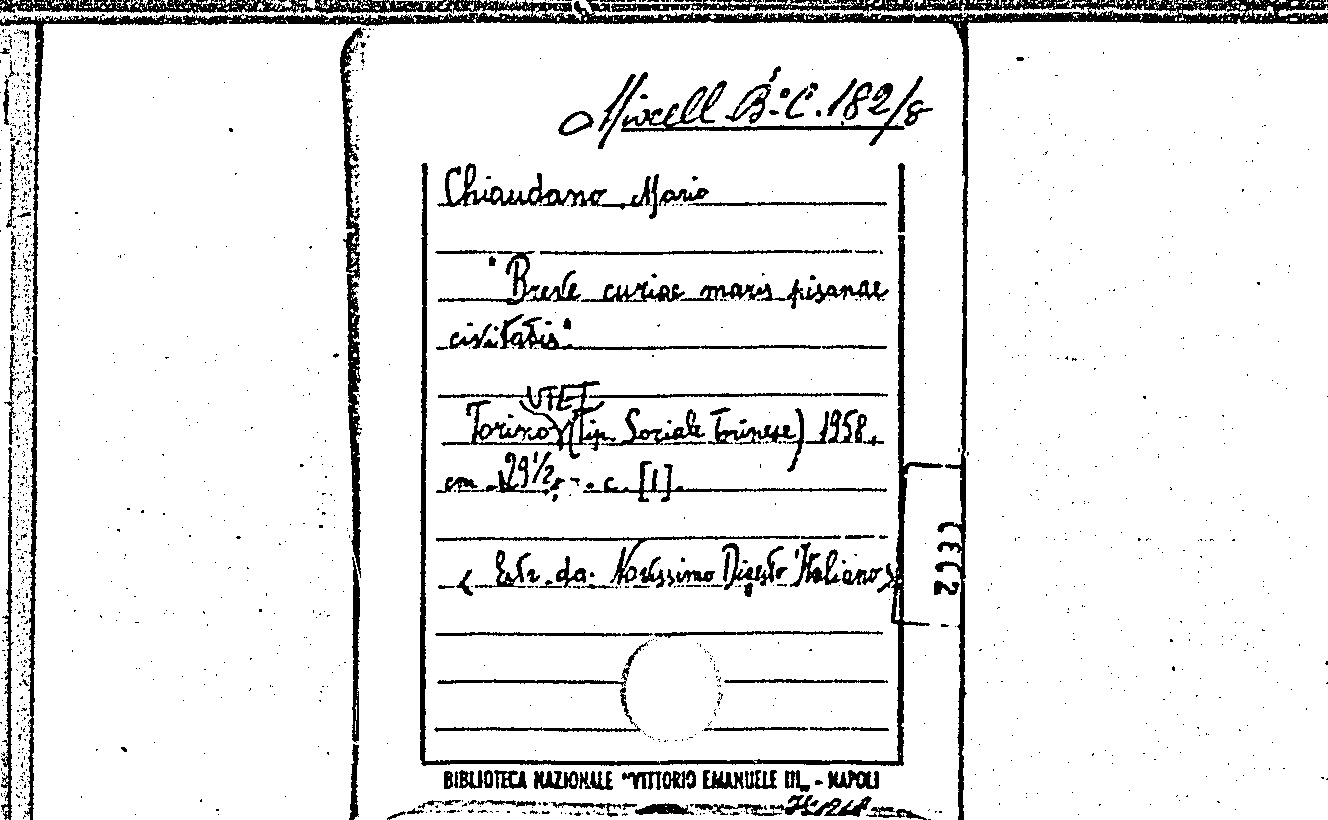 Miscell B.a C. 182/8
Chiaudano Mario
"Breve curiae maris pisanae
civitatis".
UTET
Torino (Tip. Sociale Torinese) 1958.
cm. 29½, c. [1].
( Estr. da: Novissimo Digesto Italiano)
BIBLIOTECA NAZIONALE "VITTORIO EMANUELE III„ - NAPOLI